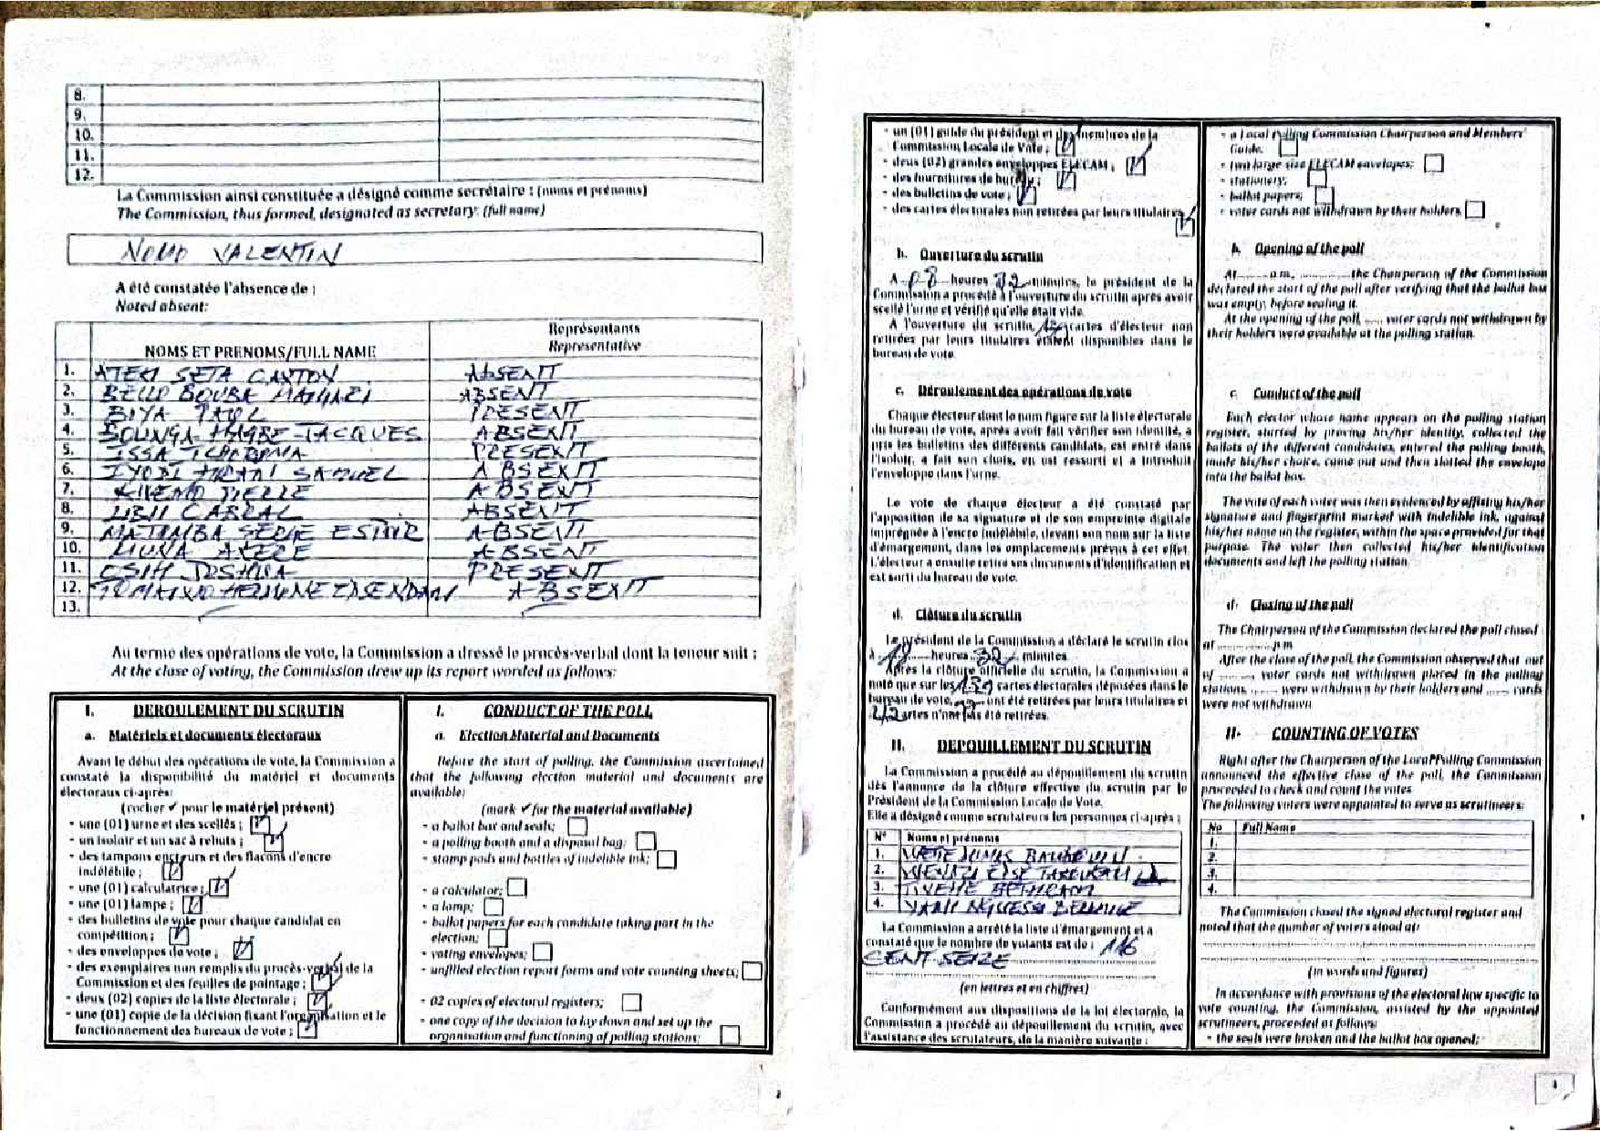 8.
9.
10.
11.
12.
La Commission ainsi constituée a désigné comme secrétaire : (noms et prénoms)
The Commission, thus formed, designated as secretary: (full name)
NOMO VALENTIN
A été constatée l'absence de :
Noted absent:
NOMS ET PRENOMS/FULL NAME
Représentants
Representative
1. ATEKI SETA CAXTON ABSENT
2. BELLO BOUBA MAIGARI ABSENT
3. BIYA PAUL PRESENT
4. BOUNGA JACQUES ABSENT
5. ISSA TCHIROMA PRESENT
6. IYODI HIRAM SAMUEL ABSENT
7. KWEMO PIERRE ABSENT
8. LIBII CABRAL ABSENT
9. MATOMBA SERGE ESPOIR ABSENT
10. MUNA AKERE ABSENT
11. OSIH JOSHUA PRESENT
12. TOMAINO HERMINE ABSENT
13.
Au terme des opérations de vote, la Commission a dressé le procès-verbal dont la teneur suit :
At the close of voting, the Commission drew up its report worded as follows:
I. DEROULEMENT DU SCRUTIN
a. Matériels et documents électoraux
Avant le début des opérations de vote, la Commission a
constaté la disponibilité du matériel et documents
électoraux ci-après:
(cocher ✔ pour le matériel présent)
- une (01) urne et des scellés ;
- un isoloir et un sac à rebuts ;
- des tampons encreurs et des flacons d'encre
indélébile ;
- une (01) calculatrice ;
- une (01) lampe ;
- des bulletins de vote pour chaque candidat en
compétition ;
- des enveloppes de vote ;
- des exemplaires non remplis du procès-verbal de la
Commission et des feuilles de pointage ;
- deux (02) copies de la liste électorale ;
- une (01) copie de la décision fixant l'organisation et le
fonctionnement des bureaux de vote ;
I. CONDUCT OF THE POLL
a. Election Material and Documents
Before the start of polling, the Commission ascertained
that the following election material and documents are
available:
(mark ✔ for the material available)
- a ballot box and seals;
- a polling booth and a disposal bag;
- stamp pads and bottles of indelible ink;
- a calculator;
- a lamp;
- ballot papers for each candidate taking part in the
election;
- voting envelopes;
- unfilled election report forms and vote counting sheets;
- 02 copies of electoral registers;
- one copy of the decision to lay down and set up the
organisation and functioning of polling stations;
- un (01) guide du président et des membres de la
Commission Locale de Vote ;
- deux (02) grandes enveloppes ELECAM ;
- des fournitures de bureau ;
- des bulletins de vote ;
- des cartes électorales non retirées par leurs titulaires
b. Ouverture du scrutin
A 08 heures 32 minutes, le président de la
Commission a procédé à l'ouverture du scrutin après avoir
scellé l'urne et vérifié qu'elle était vide.
A l'ouverture du scrutin, cartes d'électeur non
retirées par leurs titulaires étaient disponibles dans le
bureau de vote.
c. Déroulement des opérations de vote
Chaque électeur dont le nom figure sur la liste électorale
du bureau de vote, après avoir fait vérifier son identité, a
pris les bulletins des différents candidats, est entré dans
l'isoloir, a fait son choix, en est ressorti et a introduit
l'enveloppe dans l'urne.
Le vote de chaque électeur a été constaté par
l'apposition de sa signature et de son empreinte digitale
imprégnée à l'encre indélébile, devant son nom sur la liste
d'émargement, dans les emplacements prévus à cet effet.
L'électeur a ensuite retiré ses documents d'identification et
est sorti du bureau de vote.
d. Clôture du scrutin
Le président de la Commission a déclaré le scrutin clos
à 18 heures 32 minutes
Après la clôture officielle du scrutin, la Commission a
noté que sur les 139 cartes électorales déposées dans le
bureau de vote, ont été retirées par leurs titulaires et
cartes n'ont pas été retirées.
II. DEPOUILLEMENT DU SCRUTIN
La Commission a procédé au dépouillement du scrutin
dès l'annonce de la clôture effective du scrutin par le
Président de la Commission Locale de Vote.
Elle a désigné comme scrutateurs les personnes ci-après :
N° Noms et prénoms
1.
2.
3.
4.
La Commission a arrêté la liste d'émargement et a
constaté que le nombre de votants est de : 116
CENT SEIZE
(en lettres et en chiffres)
Conformément aux dispositions de la loi électorale, la
Commission a procédé au dépouillement du scrutin, avec
l'assistance des scrutateurs, de la manière suivante :
- a Local Polling Commission Chairperson and Members'
Guide;
- two large size ELECAM envelopes;
- stationery;
- ballot papers;
- voter cards not withdrawn by their holders
b. Opening of the poll
At ........ a.m, ............ the Chairperson of the Commission
declared the start of the poll after verifying that the ballot box
was empty, before sealing it.
At the opening of the poll, ...... voter cards not withdrawn by
their holders were available at the polling station.
c. Conduct of the poll
Each elector whose name appears on the polling station
register, started by proving his/her identity, collected the
ballots of the different candidates, entered the polling booth,
made his/her choice, came out and then slotted the envelope
into the ballot box.
The vote of each voter was then evidenced by affixing his/her
signature and fingerprint marked with indelible ink, against
his/her name on the register, within the space provided for that
purpose. The voter then collected his/her identification
documents and left the polling station.
d. Closing of the poll
The Chairperson of the Commission declared the poll closed
at ............ p.m
After the close of the poll, the Commission observed that out
of ........ voter cards not withdrawn placed in the polling
stations, ....... were withdrawn by their holders and ...... cards
were not withdrawn.
II- COUNTING OF VOTES
Right after the Chairperson of the Local Polling Commission
announced the effective close of the poll, the Commission
proceeded to check and count the votes
The following voters were appointed to serve as scrutineers:
No Full Name
1.
2.
3.
4.
The Commission closed the signed electoral register and
noted that the number of voters stood at:
(in words and figures)
In accordance with provisions of the electoral law specific to
vote counting, the Commission, assisted by the appointed
scrutineers, proceeded as follows:
- the seals were broken and the ballot box opened;